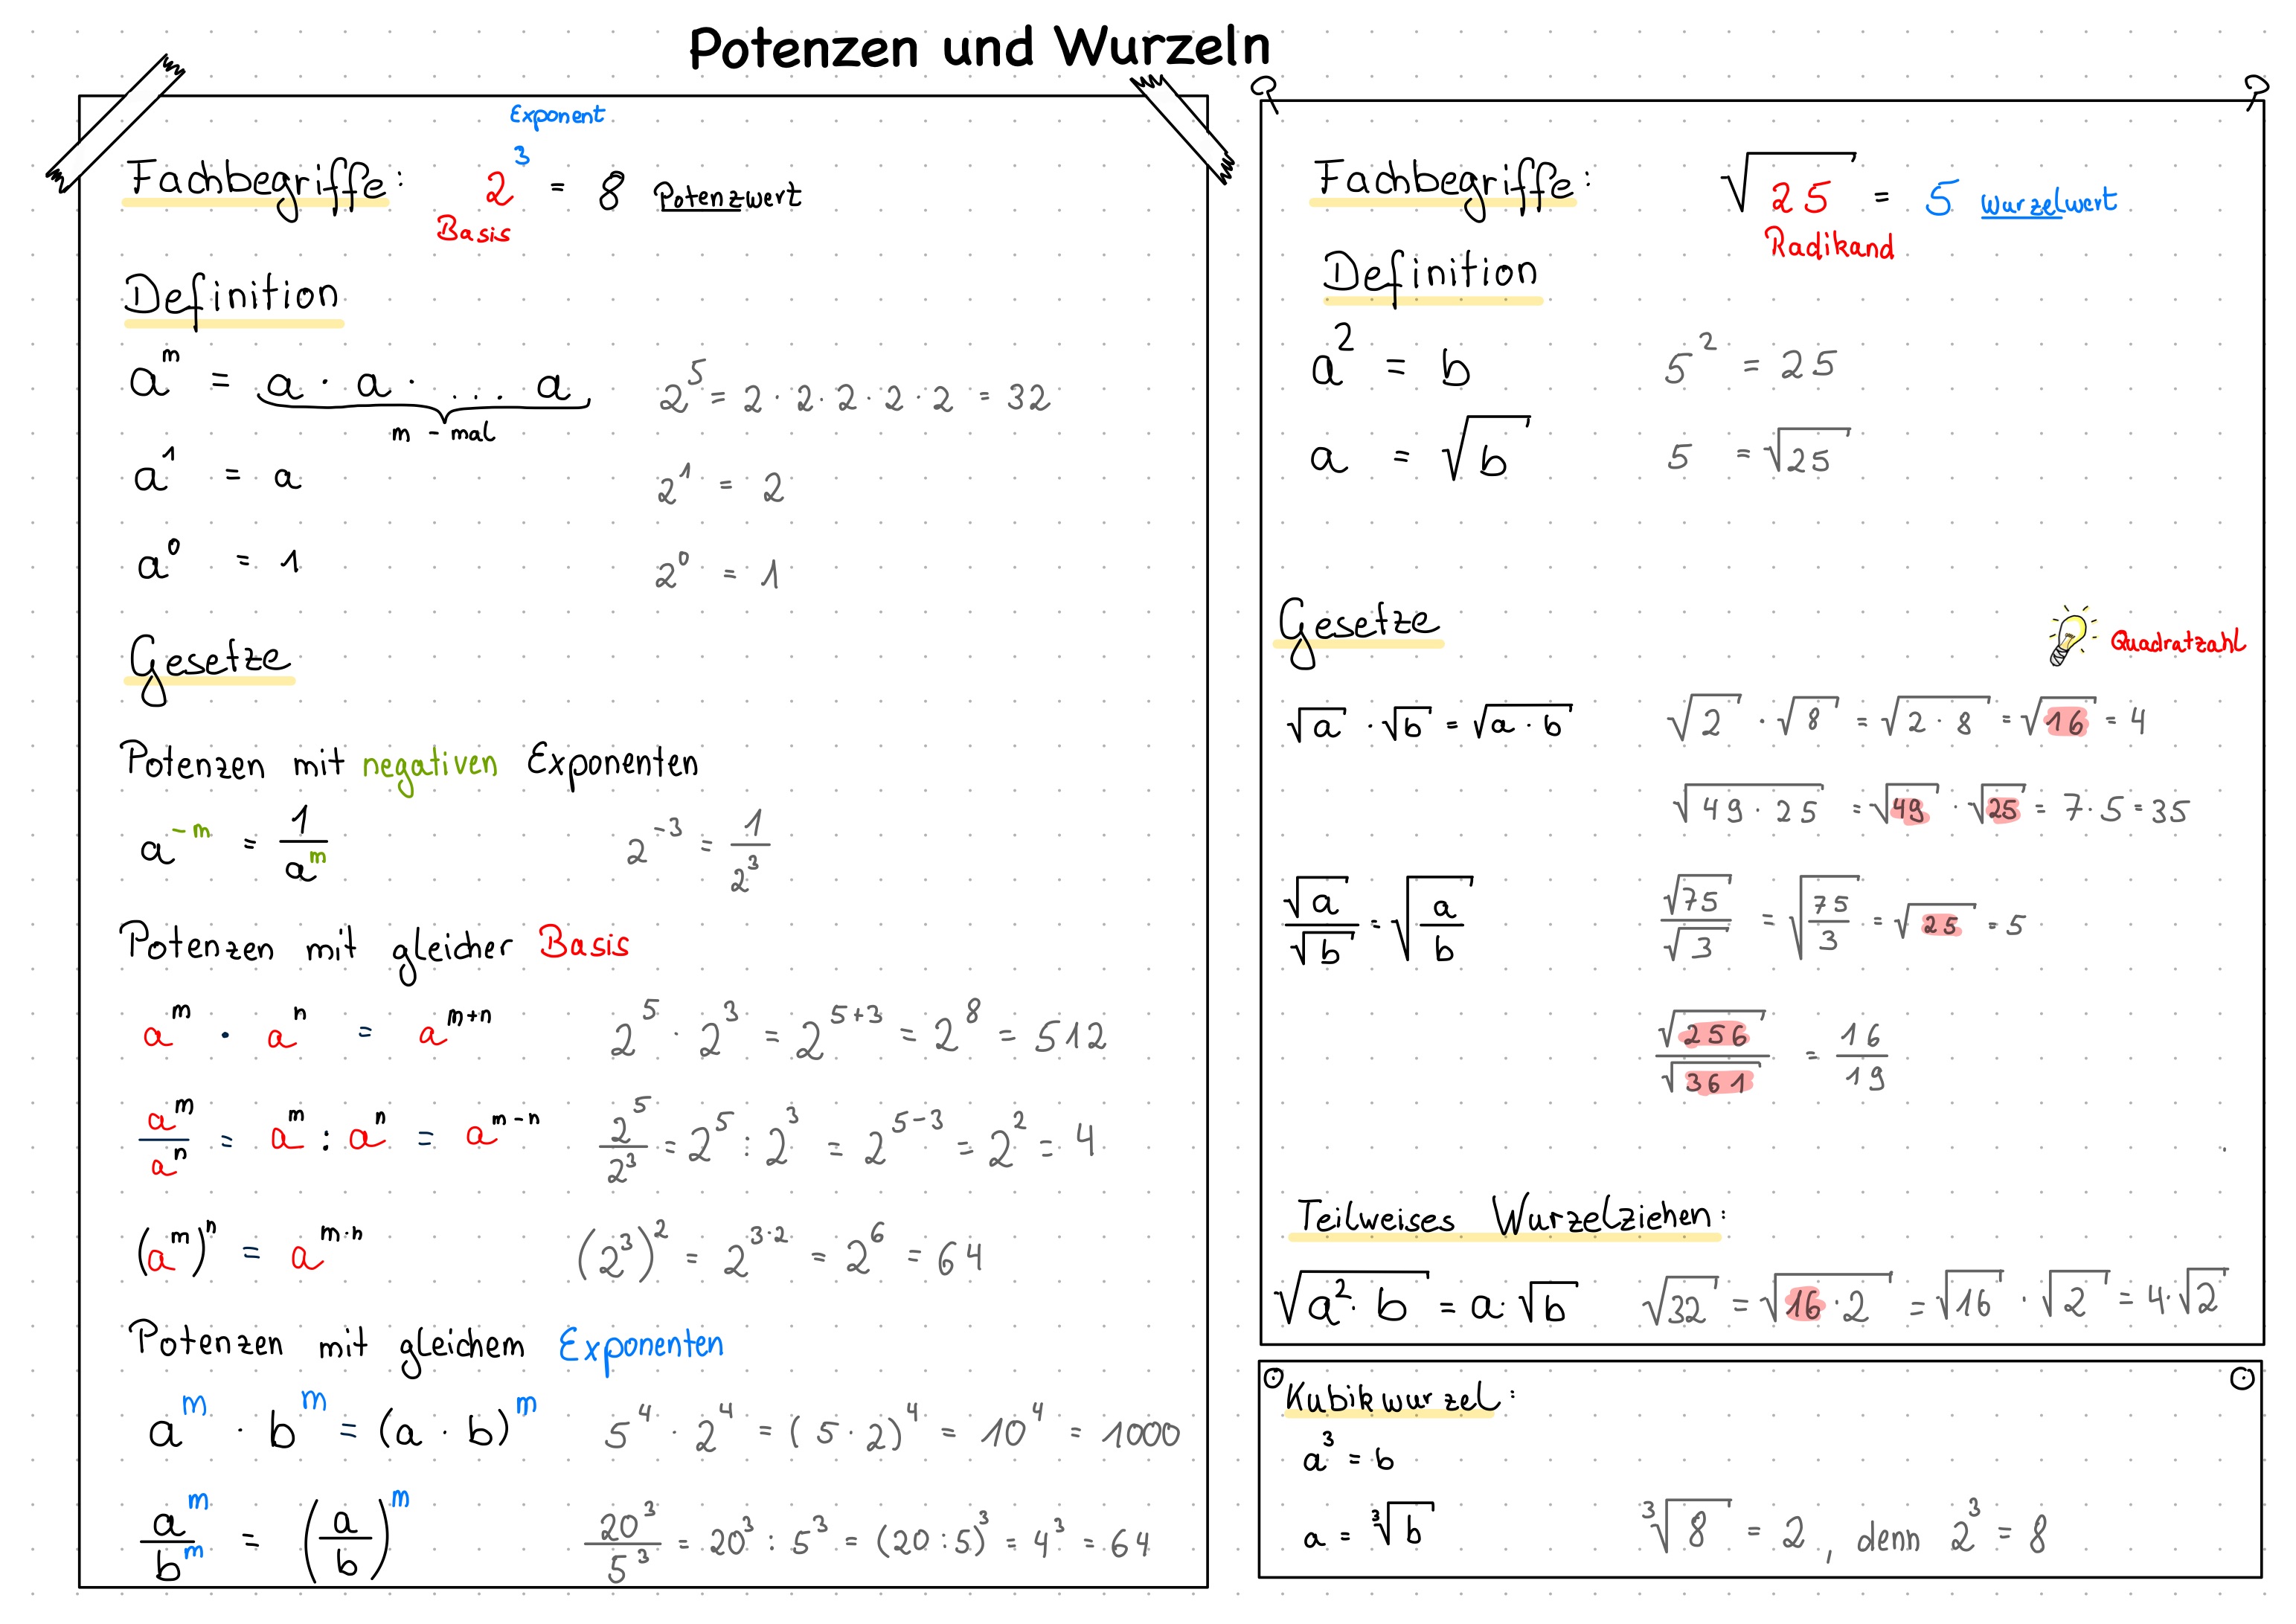 Potenzen und Wurzeln
Exponent
Fachbegriffe: 2³ = 8 Potenzwert
Basis
Definition
aᵐ = a · a · ... a
m - mal
2⁵ = 2 · 2 · 2 · 2 · 2 = 32
a¹ = a
2¹ = 2
a⁰ = 1
2⁰ = 1
Gesetze
Potenzen mit negativen Exponenten
a⁻ᵐ = 1/aᵐ
2⁻³ = 1/2³
Potenzen mit gleicher Basis
aᵐ · aⁿ = aᵐ⁺ⁿ
2⁵ · 2³ = 2⁵⁺³ = 2⁸ = 512
aᵐ/aⁿ = aᵐ : aⁿ = aᵐ⁻ⁿ
2⁵/2³ = 2⁵ : 2³ = 2⁵⁻³ = 2² = 4
(aᵐ)ⁿ = aᵐ·ⁿ
(2³)² = 2³·² = 2⁶ = 64
Potenzen mit gleichem Exponenten
aᵐ · bᵐ = (a · b)ᵐ
5⁴ · 2⁴ = (5 · 2)⁴ = 10⁴ = 1000
aᵐ/bᵐ = (a/b)ᵐ
20³/5³ = 20³ : 5³ = (20 : 5)³ = 4³ = 64
Fachbegriffe: √25 = 5 Wurzelwert
Radikand
Definition
a² = b
5² = 25
a = √b
5 = √25
Gesetze
Quadratzahl
√a · √b = √(a · b)
√2 · √8 = √(2 · 8) = √16 = 4
√(49 · 25) = √49 · √25 = 7 · 5 = 35
√a/√b = √(a/b)
√75/√3 = √(75/3) = √25 = 5
√256/√361 = 16/19
Teilweises Wurzelziehen:
√(a² · b) = a · √b
√32 = √(16 · 2) = √16 · √2 = 4 · √2
Kubikwurzel:
a³ = b
a = ³√b
³√8 = 2, denn 2³ = 8